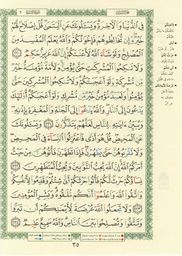 فِي الدُّنْيَا وَالْآخِرَةِ وَيَسْأَلُونَكَ عَنِ الْيَتَامَىٰ قُلْ إِصْلَاحٌ لَّهُمْ
خَيْرٌ وَإِن تُخَالِطُوهُمْ فَإِخْوَانُكُمْ وَاللَّهُ يَعْلَمُ الْمُفْسِدَ مِنَ
الْمُصْلِحِ وَلَوْ شَاءَ اللَّهُ لَأَعْنَتَكُمْ إِنَّ اللَّهَ عَزِيزٌ حَكِيمٌ ٢٢٠
وَلَا تَنكِحُوا الْمُشْرِكَاتِ حَتَّىٰ يُؤْمِنَّ وَلَأَمَةٌ مُّؤْمِنَةٌ خَيْرٌ
مِّن مُّشْرِكَةٍ وَلَوْ أَعْجَبَتْكُمْ وَلَا تُنكِحُوا الْمُشْرِكِينَ حَتَّىٰ
يُؤْمِنُوا وَلَعَبْدٌ مُّؤْمِنٌ خَيْرٌ مِّن مُّشْرِكٍ وَلَوْ أَعْجَبَكُمْ أُولَٰئِكَ
يَدْعُونَ إِلَى النَّارِ وَاللَّهُ يَدْعُو إِلَى الْجَنَّةِ وَالْمَغْفِرَةِ بِإِذْنِهِ
وَيُبَيِّنُ آيَاتِهِ لِلنَّاسِ لَعَلَّهُمْ يَتَذَكَّرُونَ ٢٢١ وَيَسْأَلُونَكَ
عَنِ الْمَحِيضِ قُلْ هُوَ أَذًى فَاعْتَزِلُوا النِّسَاءَ فِي الْمَحِيضِ
وَلَا تَقْرَبُوهُنَّ حَتَّىٰ يَطْهُرْنَ فَإِذَا تَطَهَّرْنَ فَأْتُوهُنَّ مِنْ حَيْثُ
أَمَرَكُمُ اللَّهُ إِنَّ اللَّهَ يُحِبُّ التَّوَّابِينَ وَيُحِبُّ الْمُتَطَهِّرِينَ ٢٢٢
نِسَاؤُكُمْ حَرْثٌ لَّكُمْ فَأْتُوا حَرْثَكُمْ أَنَّىٰ شِئْتُمْ وَقَدِّمُوا
لِأَنفُسِكُمْ وَاتَّقُوا اللَّهَ وَاعْلَمُوا أَنَّكُم مُّلَاقُوهُ وَبَشِّرِ الْمُؤْمِنِينَ
٢٢٣ وَلَا تَجْعَلُوا اللَّهَ عُرْضَةً لِّأَيْمَانِكُمْ أَن تَبَرُّوا
وَتَتَّقُوا وَتُصْلِحُوا بَيْنَ النَّاسِ وَاللَّهُ سَمِيعٌ عَلِيمٌ ٢٢٤
٣٥